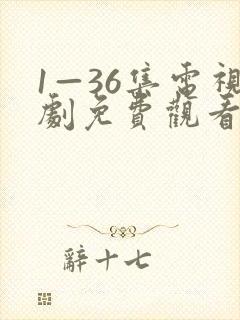 1—36集電視
劇免費觀看
辭十七